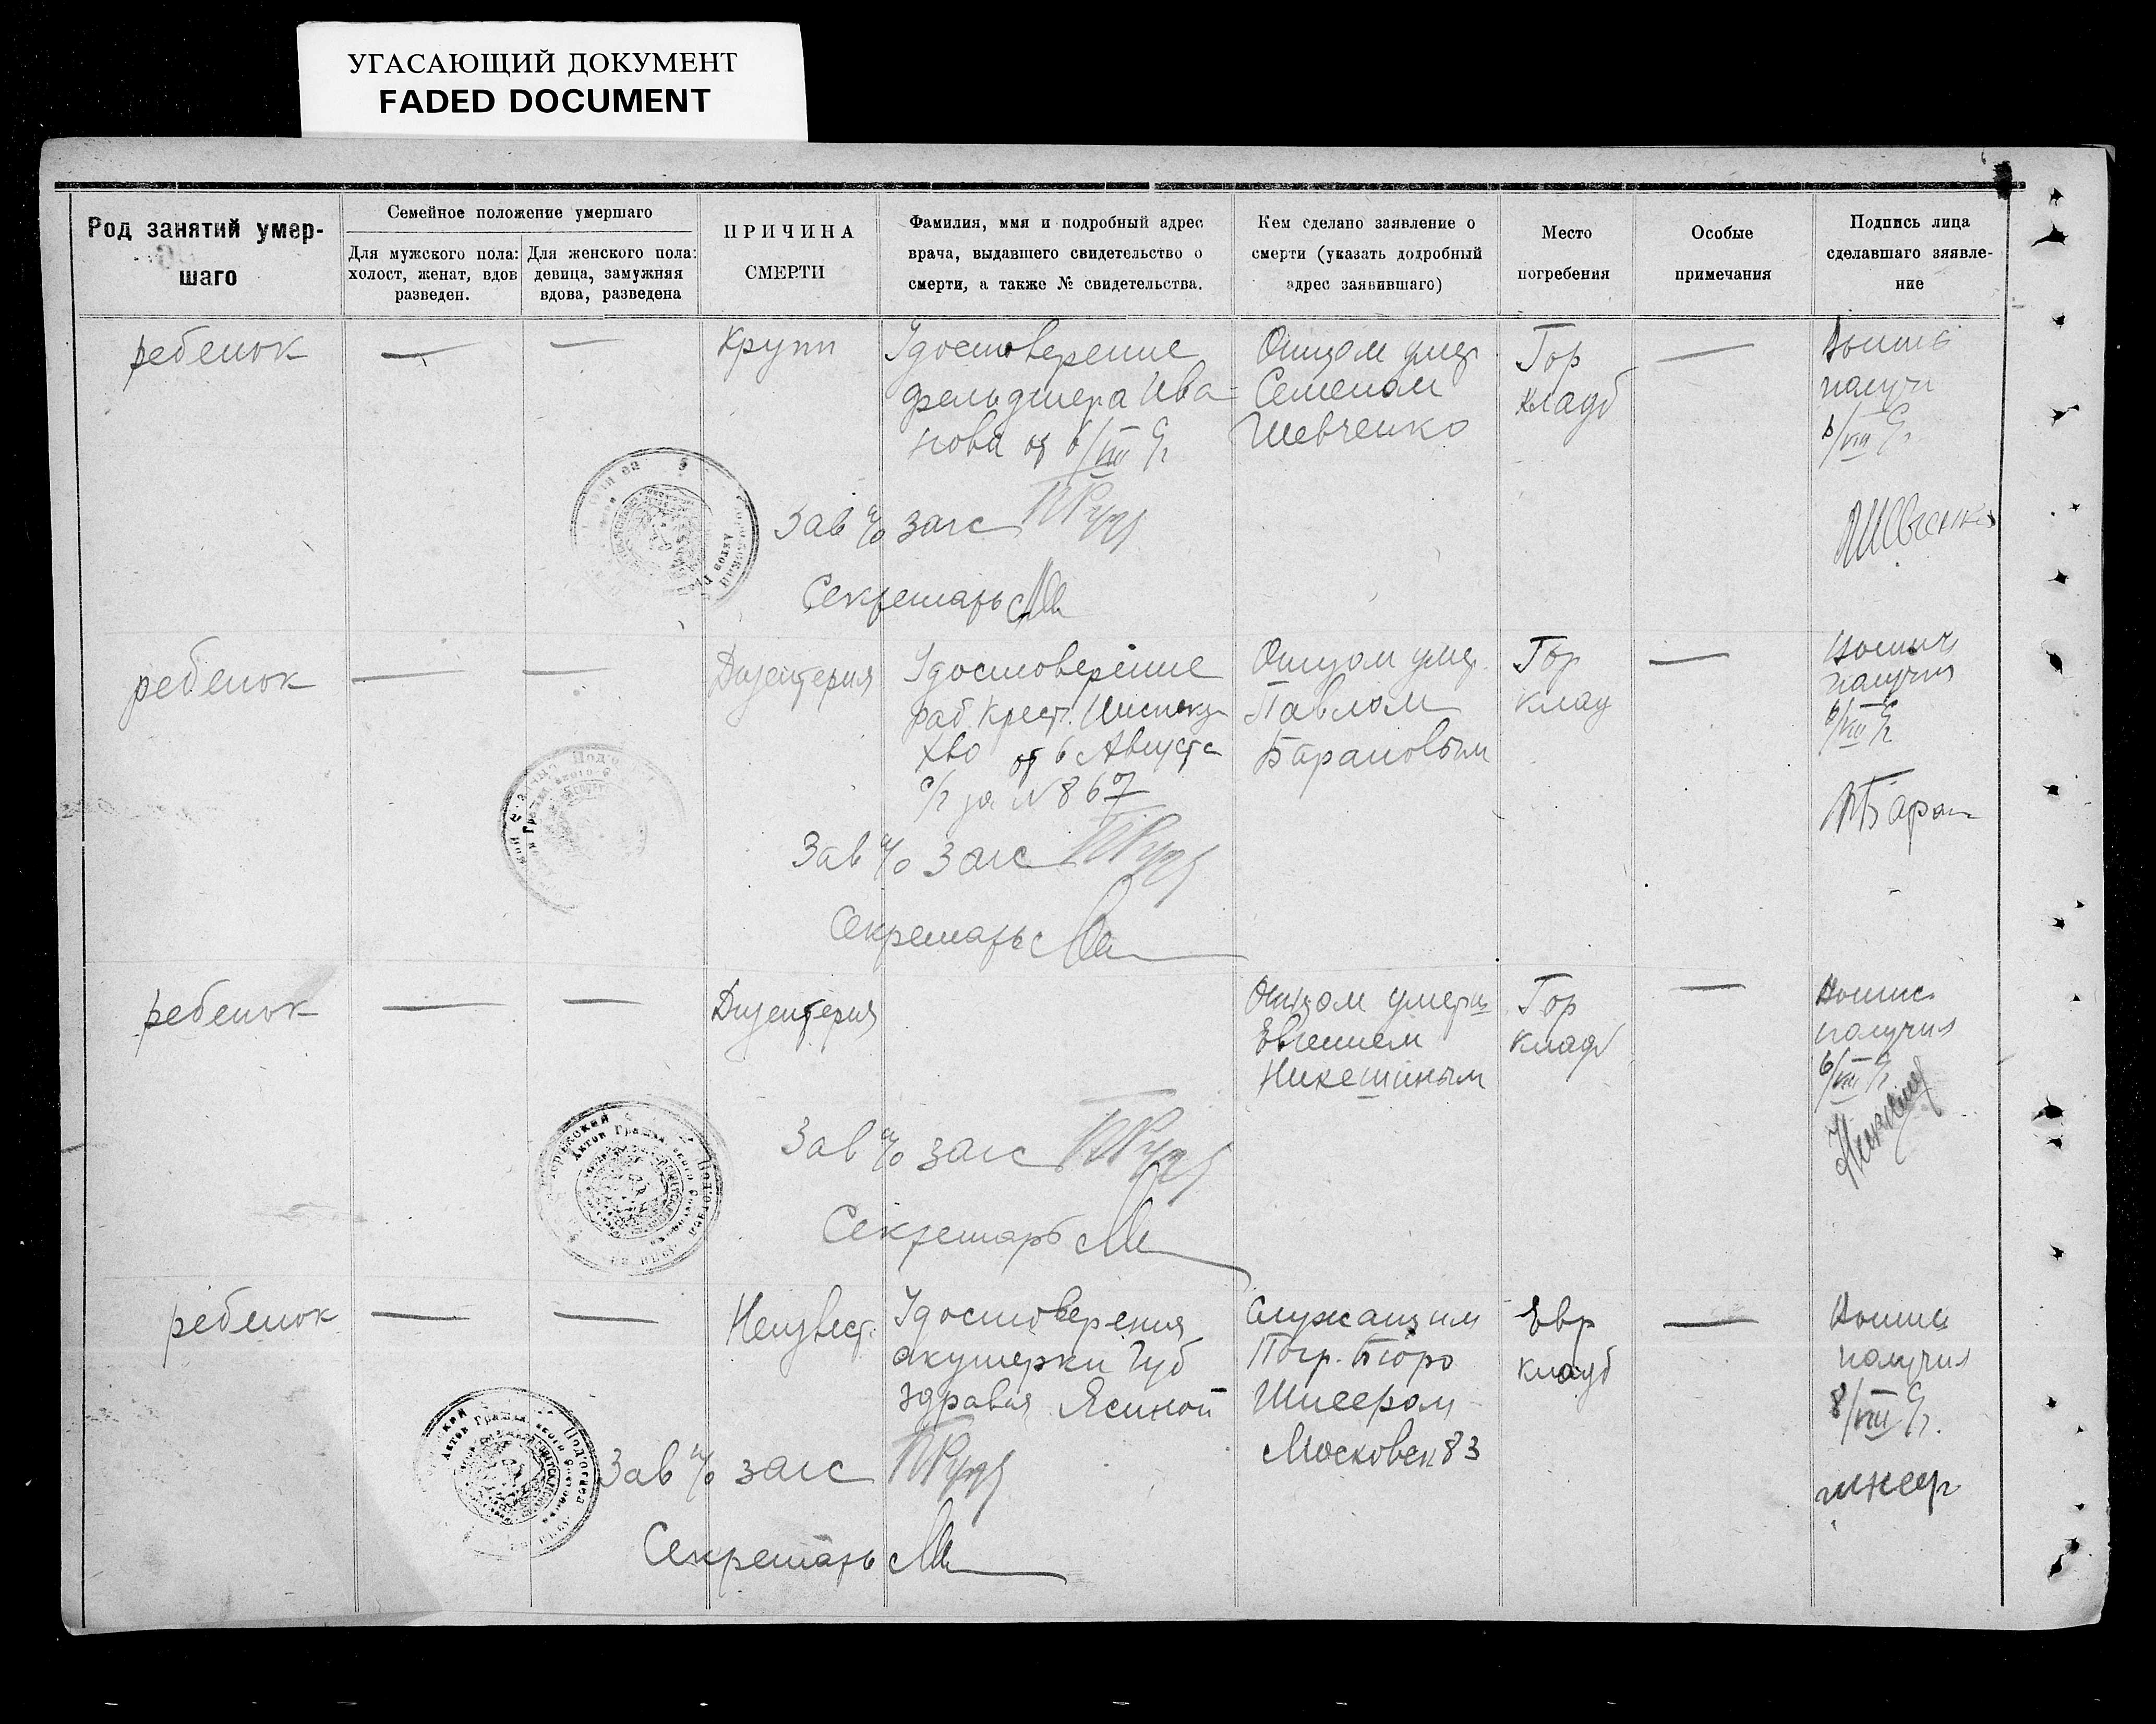 УГАСАЮЩИЙ ДОКУМЕНТ
FADED DOCUMENT
Род занятий умер-
шаго
Семейное положение умершаго
Для мужского пола:
холост, женат, вдов
разведен.
Для женского пола:
девица, замужняя
вдова, разведена
ПРИЧИНА
СМЕРТИ
Фамилия, имя и подробный адрес
врача, выдавшего свидетельство о
смерти, а также № свидетельства.
Кем сделано заявление о
смерти (указать додробный
адрес заявившаго)
Место
погребения
Особые
примечания
Подпись лица
сделавшаго зяявле-
ние
ребенок
—
—
Крупп
Удостоверение
фельдшера Ива-
нова от 6/VIII с/г
Отцом умер.
Семеном
Шевченко
Гор
кладб
—
получ
6/VIII с/г.
Зав п/о загс
Секретарь
ребенок
—
—
Дизентерия
Удостоверение
раб. Крест. Инспекц
от 6 Августа
с/г за N 867
Отцом умер.
Павлом
Барановым
Гор
клад
—
получил
6/VIII с/г
Баран
Зав п/о загс
Секретарь
ребенок
—
—
Дизентерия
Отцом умерш
Евгением
Никешиным
Гор
кладб
—
получил
6/VIII с/г
Зав п/о загс
Секретарь
ребенок
—
—
Неизвест.
Удостоверения
акушерки Губ
здрава Ясиной
Служащим
Погр. Бюро
Шнеером
Московск 83
Евр
кладб
—
получил
8/VIII с/г.
Шнеер
Зав п/о загс
Секретарь